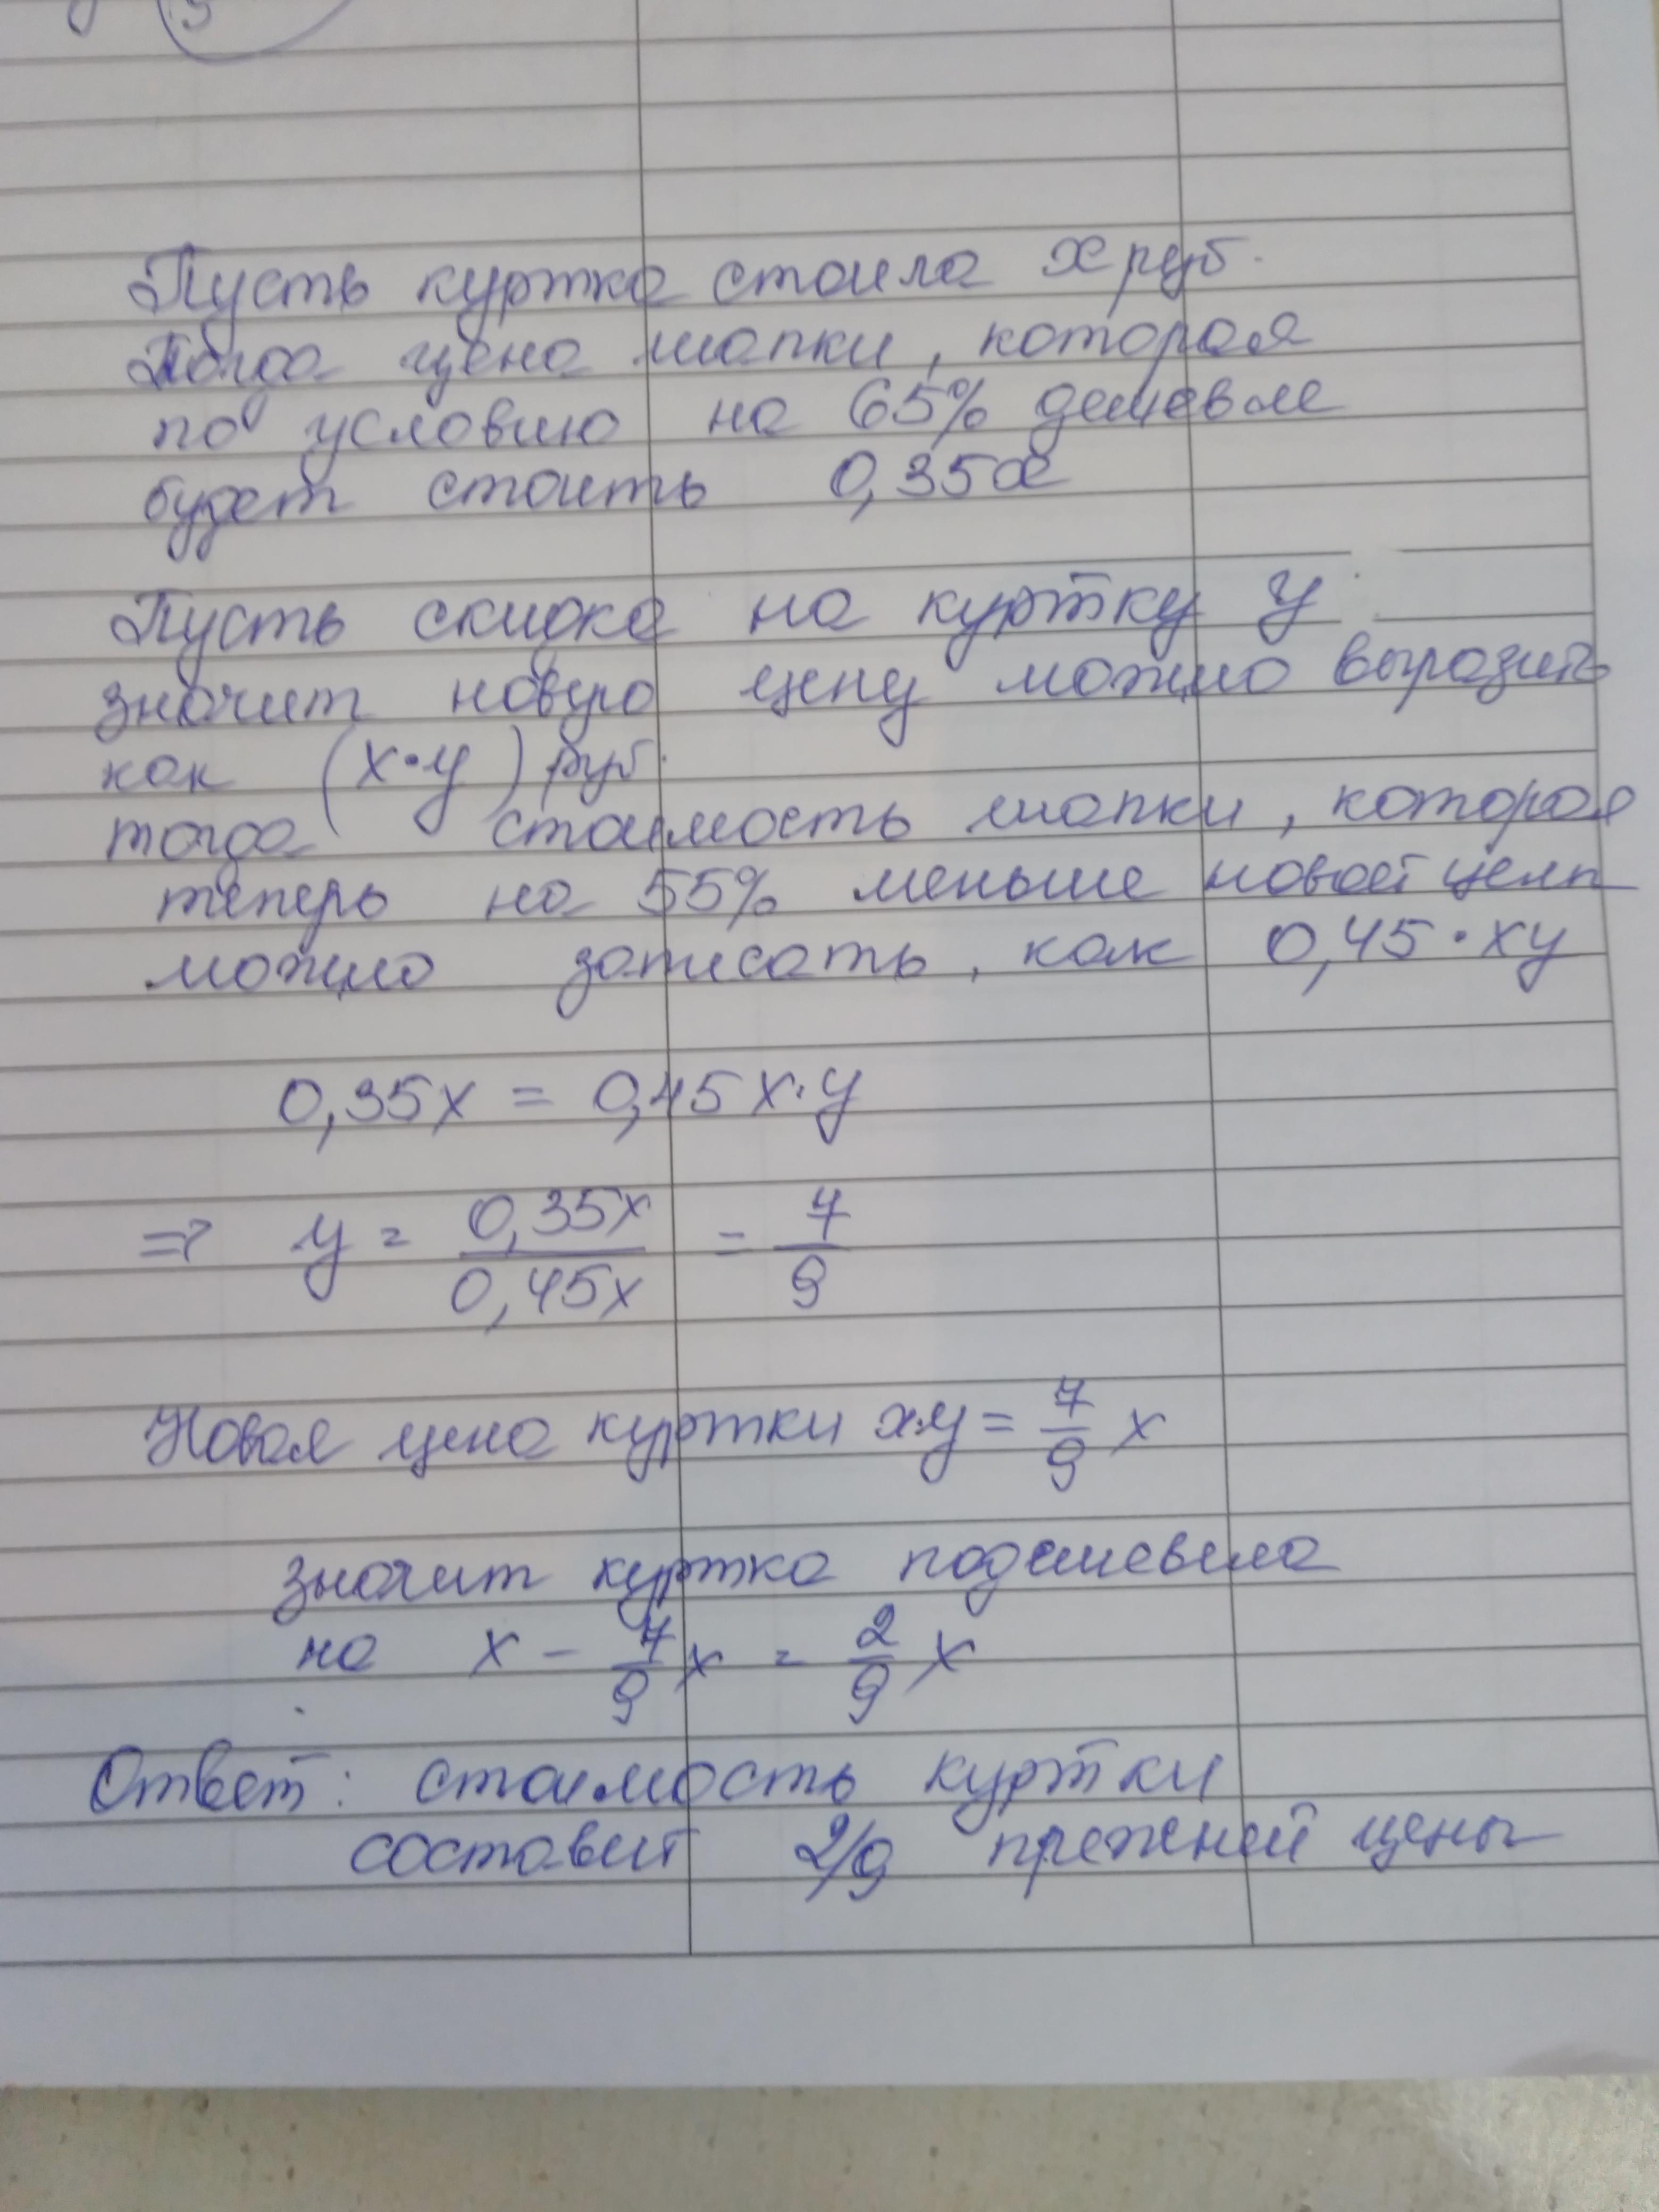 Пусть куртка стоила x руб.
Тогда цена шапки, которая
по условию на 65% дешевле
будет стоить 0,35x
Пусть скидка на куртку y
значит новую цену можно выразить
как (x·y) руб.
тогда стоимость шапки, которая
теперь на 55% меньше новой цены
можно записать, как 0,45·xy
0,35x = 0,45x·y
=> y = 0,35x/0,45x = 7/9
Новая цена куртки x·y = 7/9 x
значит куртка подешевела
на x - 7/9 x = 2/9 x
Ответ: стоимость куртки
составит 2/9 прежней цены